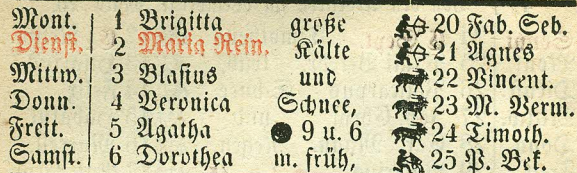 Mont. 1 Brigitta große 20 Fab. Seb.
Dienst. 2 Maria Rein. Kälte 21 Agnes
Mittw. 3 Blasius und 22 Vincent.
Donn. 4 Veronica Schnee, 23 M. Verm.
Freit. 5 Agatha ● 9 u. 6 24 Timoth.
Samst. 6 Dorothea m. früh, 25 P. Bek.